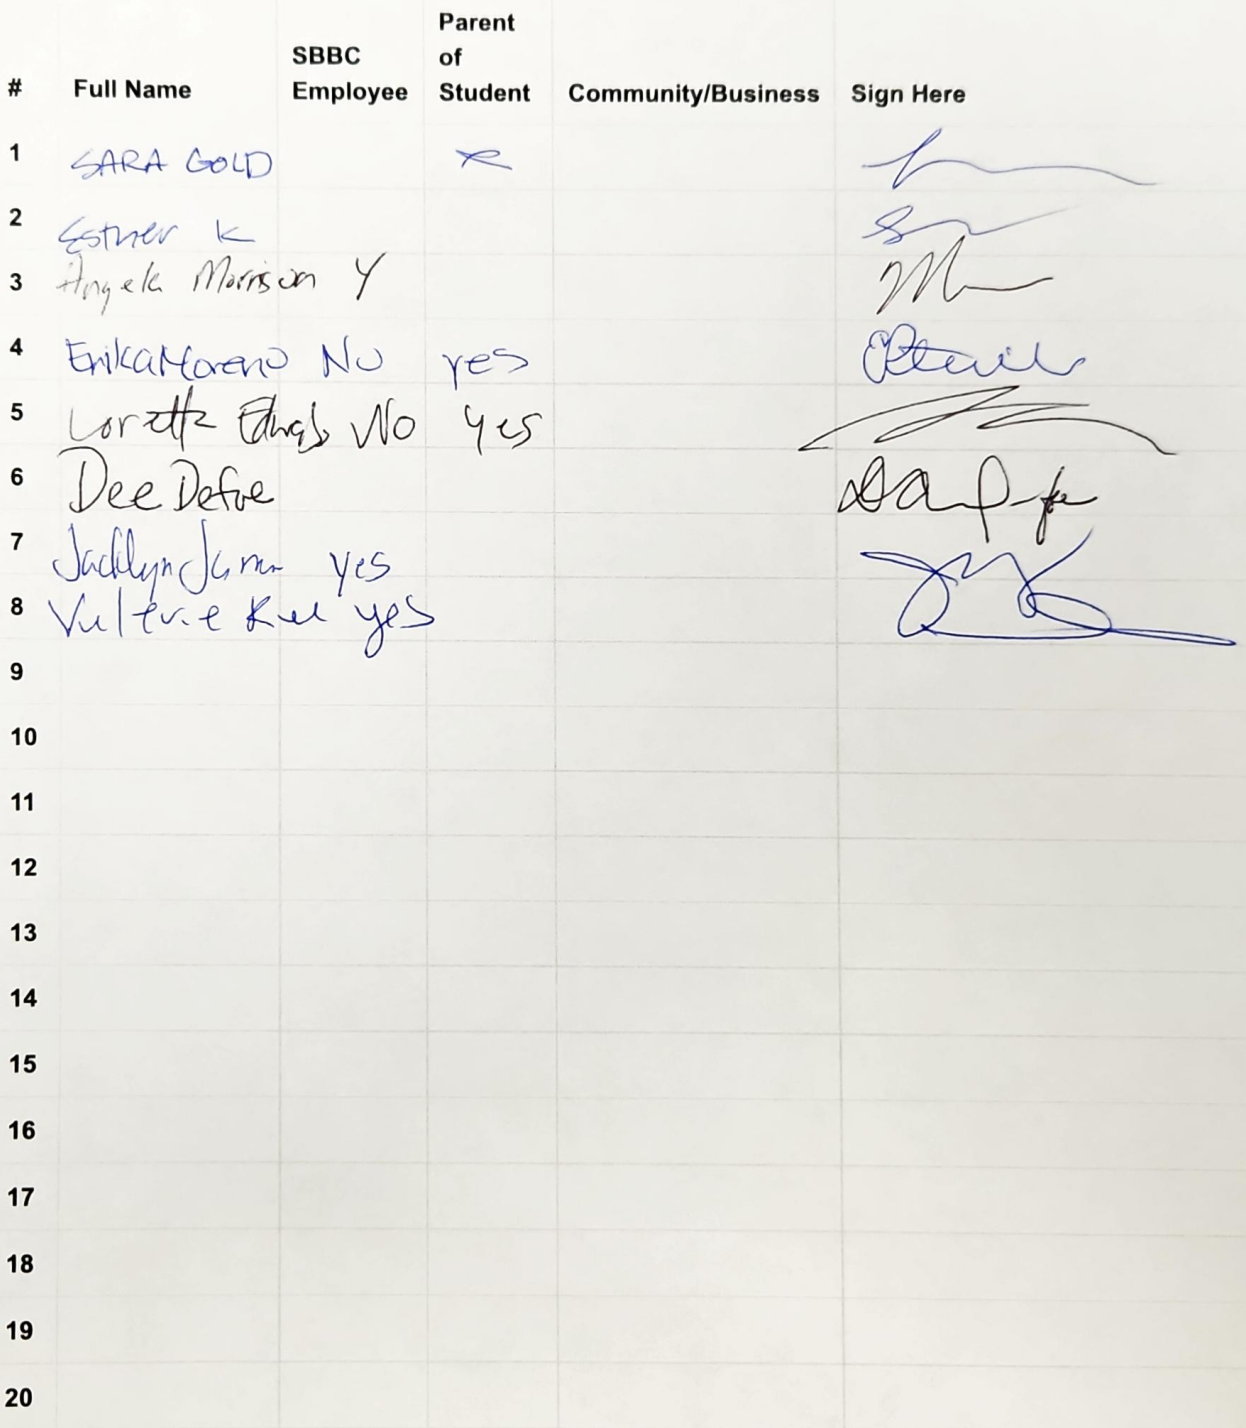 Parent
SBBC of
# Full Name Employee Student Community/Business Sign Here
1 SARA GOLD x
2 Esther K
3 Angela Morrison Y
4 Erika Moreno No yes
5 Loretta Edwards No Yes
6 Dee Defoe
7 Jacklyn yes
8 Valerie yes
9
10
11
12
13
14
15
16
17
18
19
20